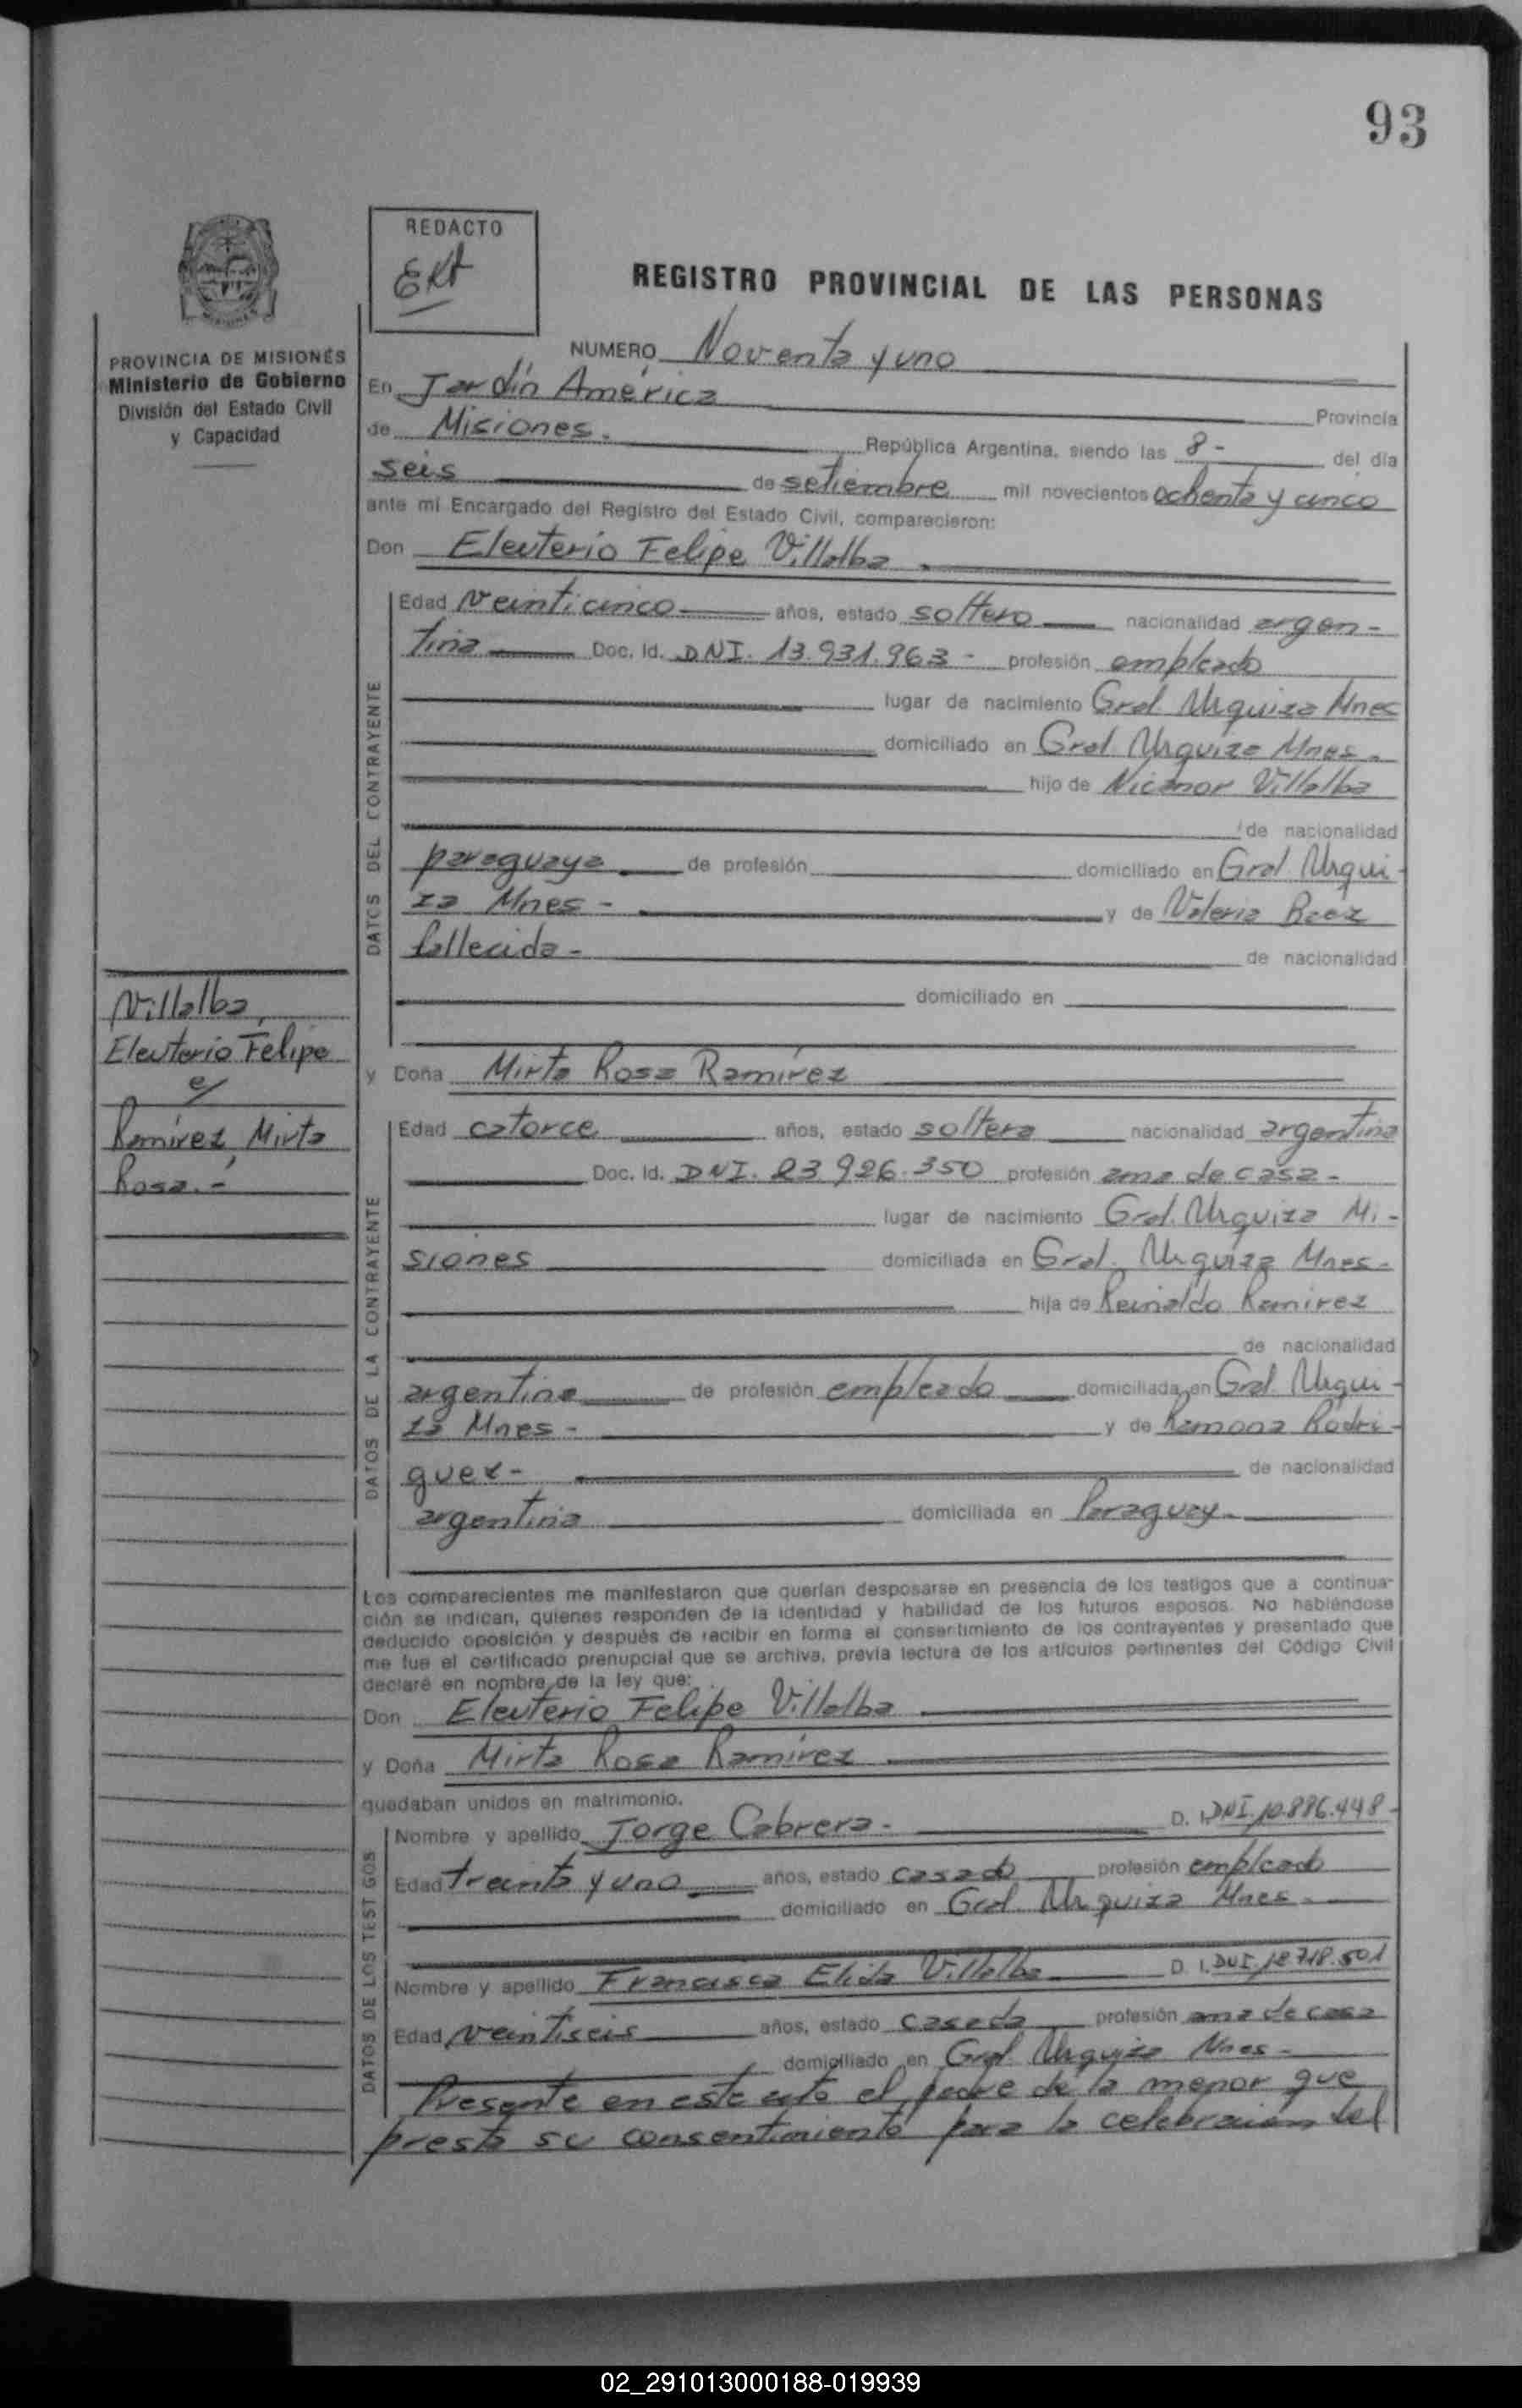 93
REDACTO
REGISTRO PROVINCIAL DE LAS PERSONAS
PROVINCIA DE MISIONES
Ministerio de Gobierno
División del Estado Civil
y Capacidad
NUMERO Noventa y uno
En Jardín América Provincia
de Misiones. República Argentina, siendo las 8 - del día
seis de setiembre mil novecientos ochenta y cinco
ante mí Encargado del Registro del Estado Civil, comparecieron:
Don Eleuterio Felipe Villalba
DATOS DEL CONTRAYENTE
Edad veinticinco años, estado soltero nacionalidad argen-
tina Doc. Id. DNI. 13.931.963 - profesión empleado
lugar de nacimiento Gral Urquiza Mnes
domiciliado en Gral. Urquiza Mnes.
hijo de Nicanor Villalba
de nacionalidad
paraguaya de profesión domiciliado en Gral. Urqui-
za Mnes - y de Valeria Baez
fallecida - de nacionalidad
domiciliado en
Villalba,
Eleuterio Felipe
c/
Ramírez, Mirta
Rosa.-
y Doña Mirta Rosa Ramírez
DATOS DE LA CONTRAYENTE
Edad catorce años, estado soltera nacionalidad argentina
Doc. Id. DNI. 23.926.350 profesión ama de casa -
lugar de nacimiento Gral. Urquiza Mi-
siones domiciliada en Gral. Urquiza Mnes-
hija de Reinaldo Ramirez
de nacionalidad
argentina de profesión empleado domiciliada en Gral. Urqui-
za Mnes - y de Ramona Rodri-
guez - de nacionalidad
argentina domiciliada en Paraguay.
Los comparecientes me manifestaron que querían desposarse en presencia de los testigos que a continua-
ción se indican, quienes responden de la identidad y habilidad de los futuros esposos. No habiéndose
deducido oposición y después de recibir en forma el consentimiento de los contrayentes y presentado que
me fue el certificado prenupcial que se archiva, previa lectura de los artículos pertinentes del Código Civil
declaré en nombre de la ley que:
Don Eleuterio Felipe Villalba
y Doña Mirta Rosa Ramírez
quedaban unidos en matrimonio.
DATOS DE LOS TESTIGOS
Nombre y apellido Jorge Cabrera - D. I. DNI. 10.886.448-
Edad treinta y uno años, estado casado profesión empleado
domiciliado en Gral. Urquiza Mnes.
Nombre y apellido Francisca Elida Villalba D. I. DNI. 12.718.501
Edad veintiseis años, estado casada profesión ama de casa
domiciliado en Gral. Urquiza Mnes-
Presente en este acto el padre de la menor que
presta su consentimiento para la celebración del
02_291013000188-019939